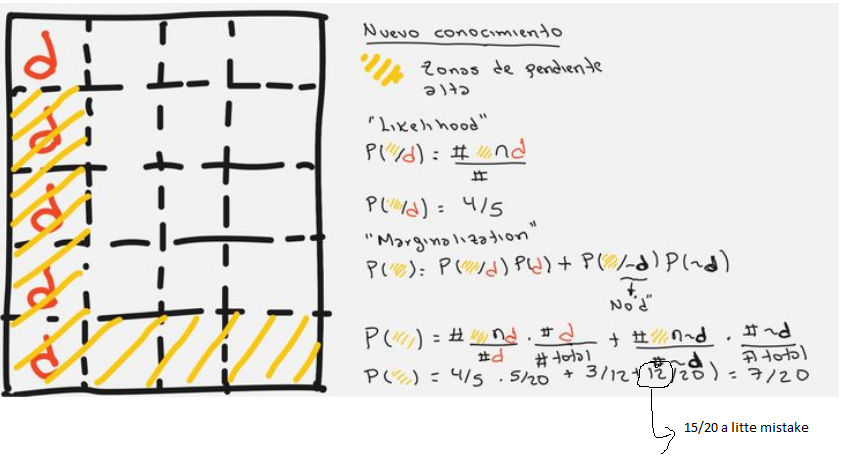 d
d
d
d
d
Nuevo conocimiento
Zonas de pendiente
alta
"Likelihood"
P( /d) = # ∩ d
#
P( /d) = 4/5
"Marginalization"
P( ) = P( /d) P(d) + P( /~d) P(~d)
No "d"
P( ) = # ∩ d / #d · # d / # total + # ∩ ~d / # ~d · # ~d / # total
P( ) = 4/5 · 5/20 + 3/12 + 12/20 ) = 7/20
15/20 a litte mistake